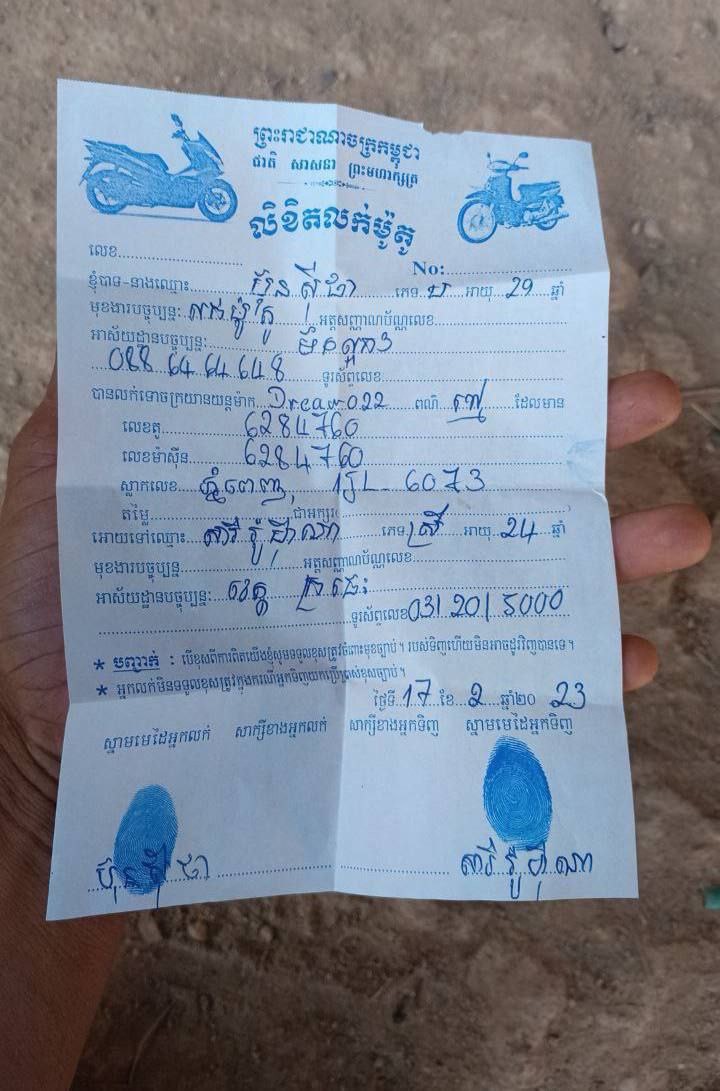 ព្រះរាជាណាចក្រកម្ពុជា
ជាតិ សាសនា ព្រះមហាក្សត្រ
លិខិតលក់ម៉ូតូ
លេខ
No:
ខ្ញុំបាទ-នាងឈ្មោះ ប៊ុន ស៊ីផា ភេទ ប អាយុ 29 ឆ្នាំ
មុខងារបច្ចុប្បន្ន: លក់ម៉ូតូ អត្តសញ្ញាណប័ណ្ណលេខ
អាស័យដ្ឋានបច្ចុប្បន្ន:
088 64 64 648 ទូរស័ព្ទលេខ
បានលក់ទោចក្រយានយន្តម៉ាក Dream 022 ពណ៌ ខ្មៅ ដែលមាន
លេខតួ 6284760
លេខម៉ាស៊ីន 6284760
ស្លាកលេខ ភ្នំពេញ, 1JL- 6073
តម្លៃ ជាអក្សរ
អោយទៅឈ្មោះ សារី រ៉ូ ភេទ ស្រី អាយុ 24 ឆ្នាំ
មុខងារបច្ចុប្បន្ន អត្តសញ្ញាណប័ណ្ណលេខ
អាស័យដ្ឋានបច្ចុប្បន្ន: ខេត្ត ក្រចេះ
ទូរស័ព្ទលេខ 031 20 1 5000
* បញ្ជាក់ : បើខុសពីការពិតយើងខ្ញុំសូមទទួលខុសត្រូវចំពោះមុខច្បាប់។ របស់ទិញហើយមិនអាចដូរវិញបានទេ។
* អ្នកលក់មិនទទួលខុសត្រូវក្នុងករណីអ្នកទិញយកប្រើប្រាស់ខុសច្បាប់។
ថ្ងៃទី 17 ខែ 2 ឆ្នាំ២០ 23
ស្នាមមេដៃអ្នកលក់ សាក្សីខាងអ្នកលក់ សាក្សីខាងអ្នកទិញ ស្នាមមេដៃអ្នកទិញ
ប៊ុន ស៊ី ផា សារី រ៉ូ